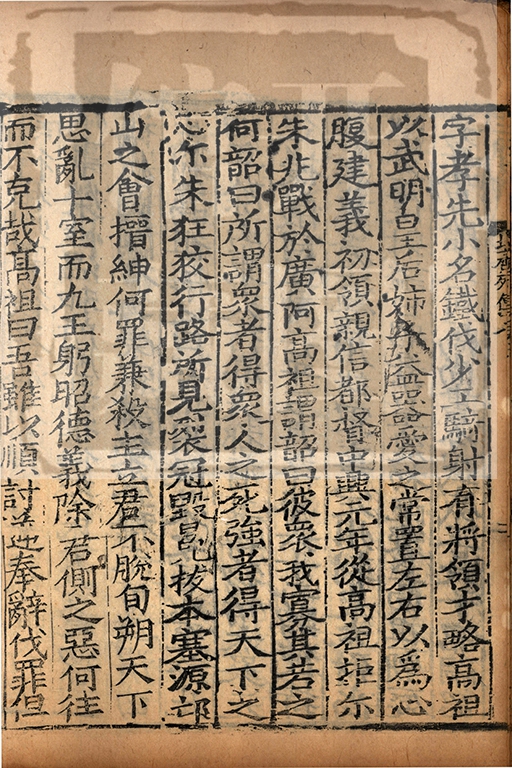 字孝先小名鐵伐少工騎射有將領才略高祖
以武明皇后姉子益器愛之常置左右以爲心
腹建義初領親信都督中興元年從高祖拒尔
朱兆戰於廣阿高祖謂韶曰彼衆我寡其若之
何韶曰所謂衆者得衆人之死強者得天下之
心尔朱狂狡行路所見裂冠毀冕拔本塞源邙
山之會搢紳何罪兼殺主立君不脫旬朔天下
思亂十室而九王躬昭德義除君側之惡何往
而不克哉高祖曰吾雖以順討逆奉辭伐罪但